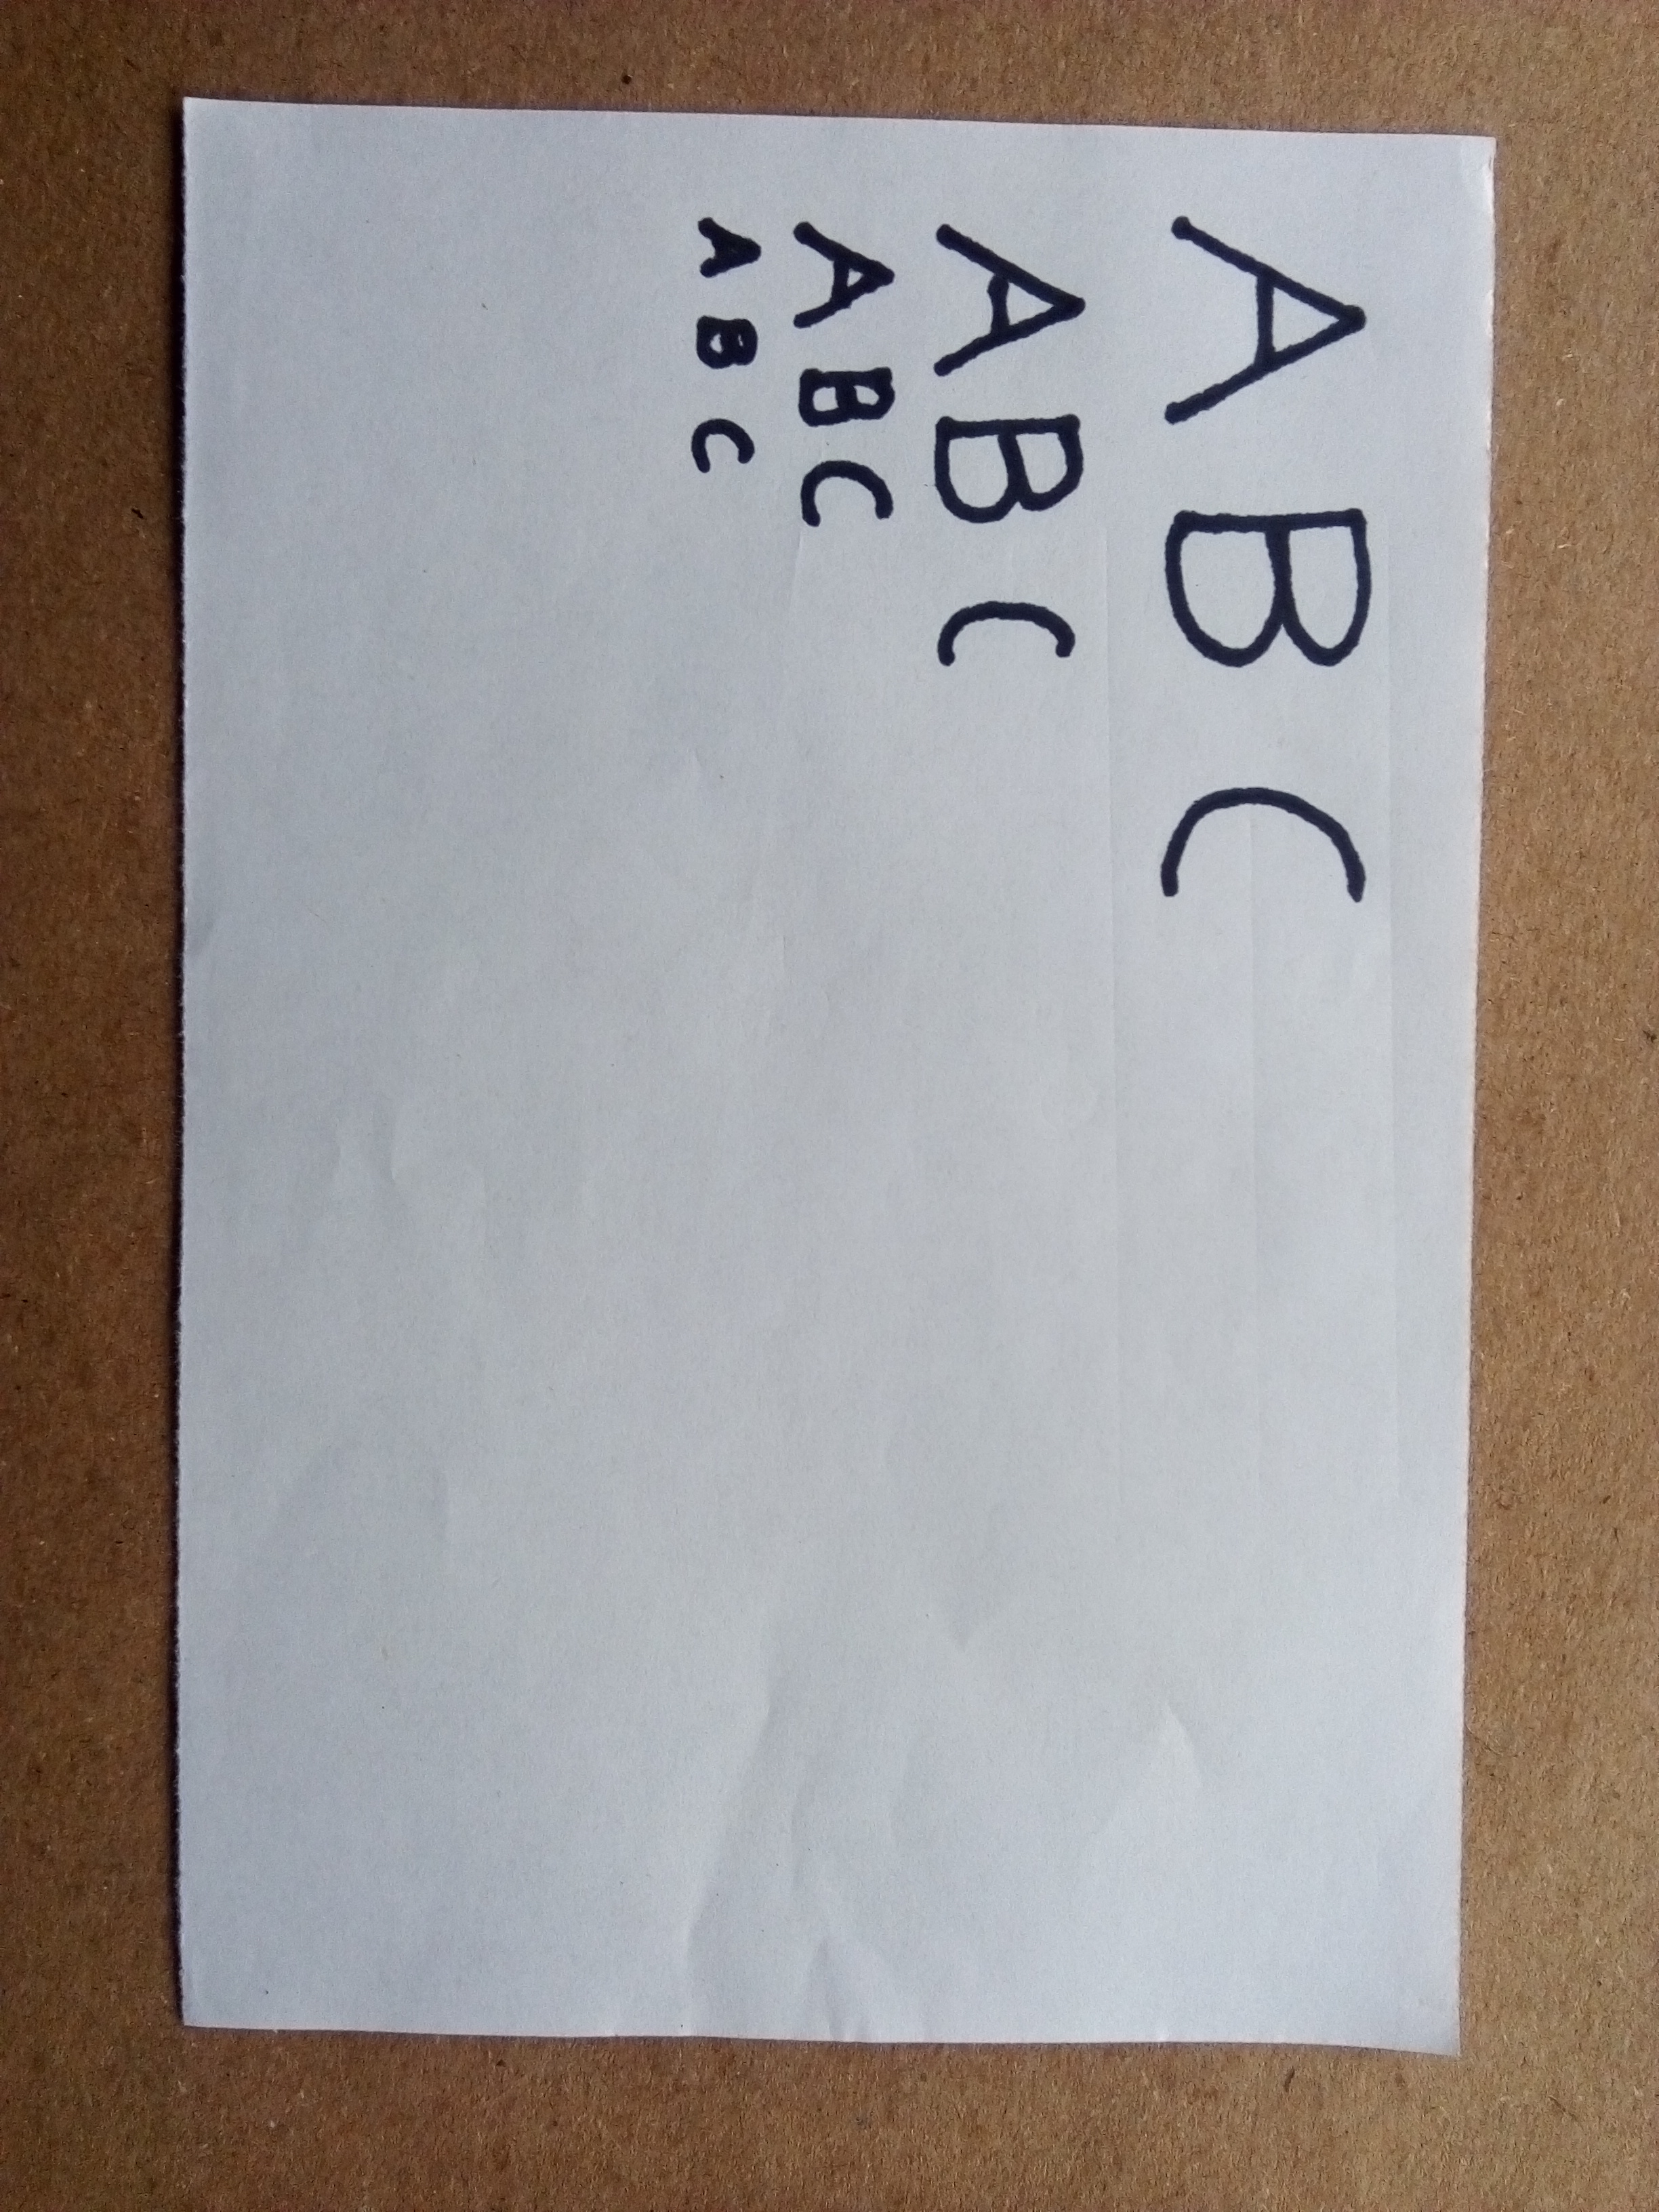 A B C
A B C
A B C
A B C